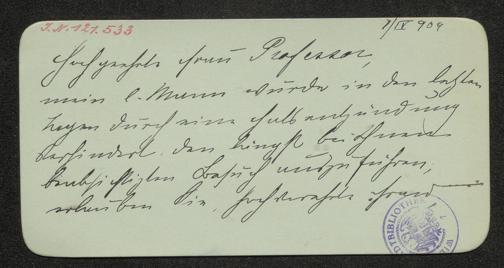 J.N. 121.533
7/IV 904
Hochgeehrte Frau Professor,
mein l. Mann wurde in den letzten
Tagen durch eine Halsentzündung
verhindert, den längst bei Ihnen
beabsichtigten Besuch auszuführen,
erlauben Sie, hochverehrte Frau
STADTBIBLIOTHEK WIEN